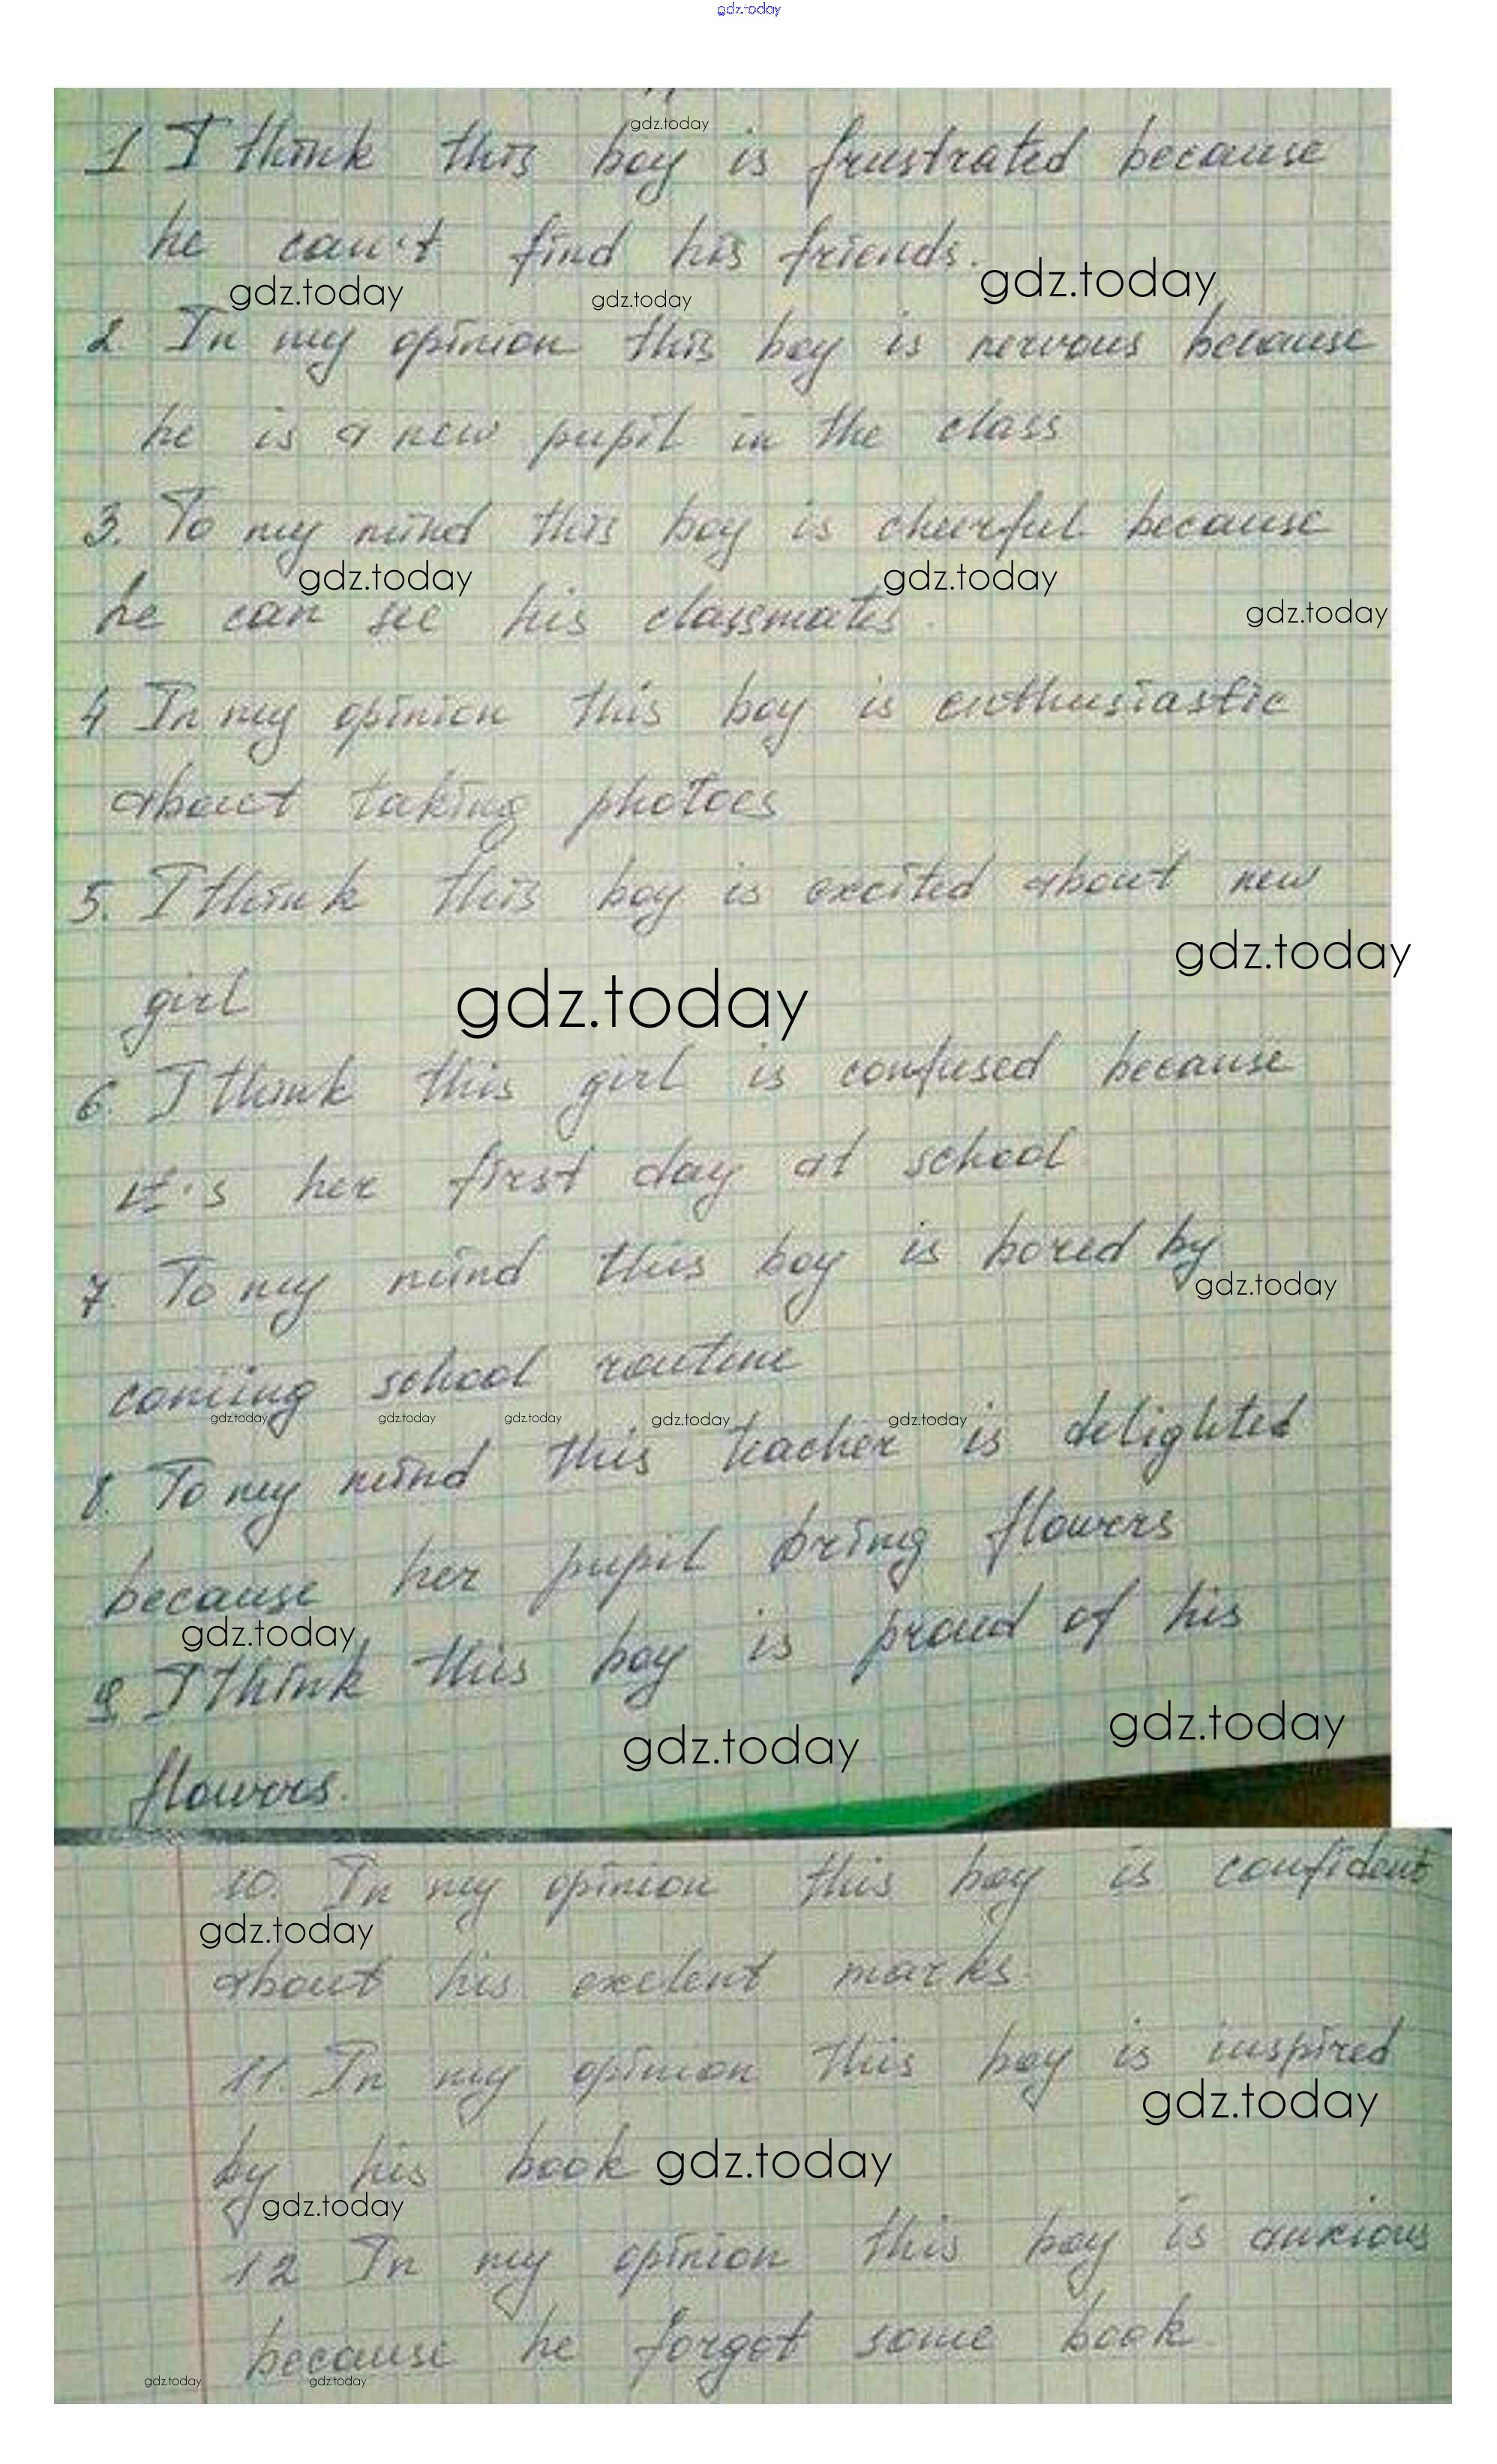 gdz.today
gdz.today
1 I think this boy is frustrated because
he can't find his friends.
gdz.today gdz.today gdz.today
2 In my opinion this boy is nervous because
he is a new pupil in the class
3. To my mind this boy is cheerful because
gdz.today gdz.today
he can see his classmates.
gdz.today
4 In my opinion this boy is enthusiastic
about taking photoes
5. I think this boy is excited about new
gdz.today
girl
gdz.today
6. I think this girl is confused because
it's her first day at school
7. To my mind this boy is bored by
gdz.today
coming school routine
gdz.today gdz.today gdz.today gdz.today gdz.today
8. To my mind this teacher is delighted
because her pupil bring flowers
gdz.today
9 I think this boy is proud of his
gdz.today gdz.today
flowers.
10. In my opinion this boy is confident
gdz.today
about his exelent marks.
11. In my opinion this boy is inspired
gdz.today
by his book
gdz.today
gdz.today
12 In my opinion this boy is anxious
because he forgot some book.
gdz.today gdz.today